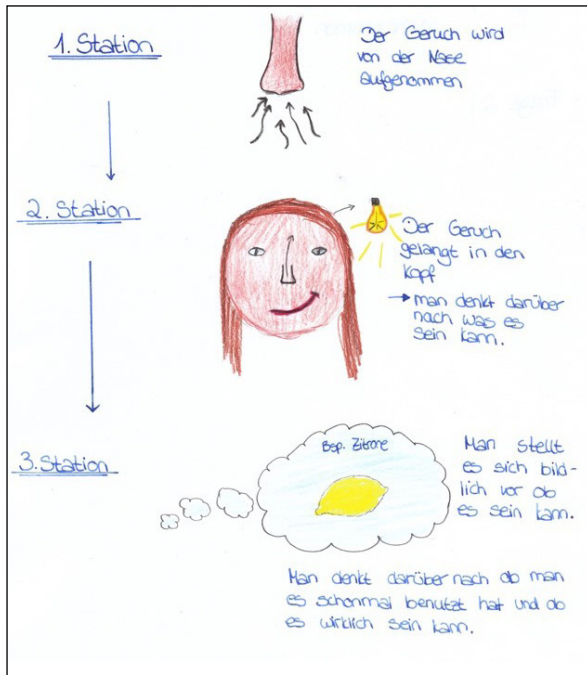 1. Station
Der Geruch wird
von der Nase
aufgenommen
2. Station
Der Geruch
gelangt in den
Kopf
→ man denkt darüber
nach was es
sein kann.
3. Station
Bsp. Zitrone
Man stellt
es sich bild-
lich vor ob
es sein kann.
Man denkt darüber nach ob man
es schonmal benutzt hat und ob
es wirklich sein kann.